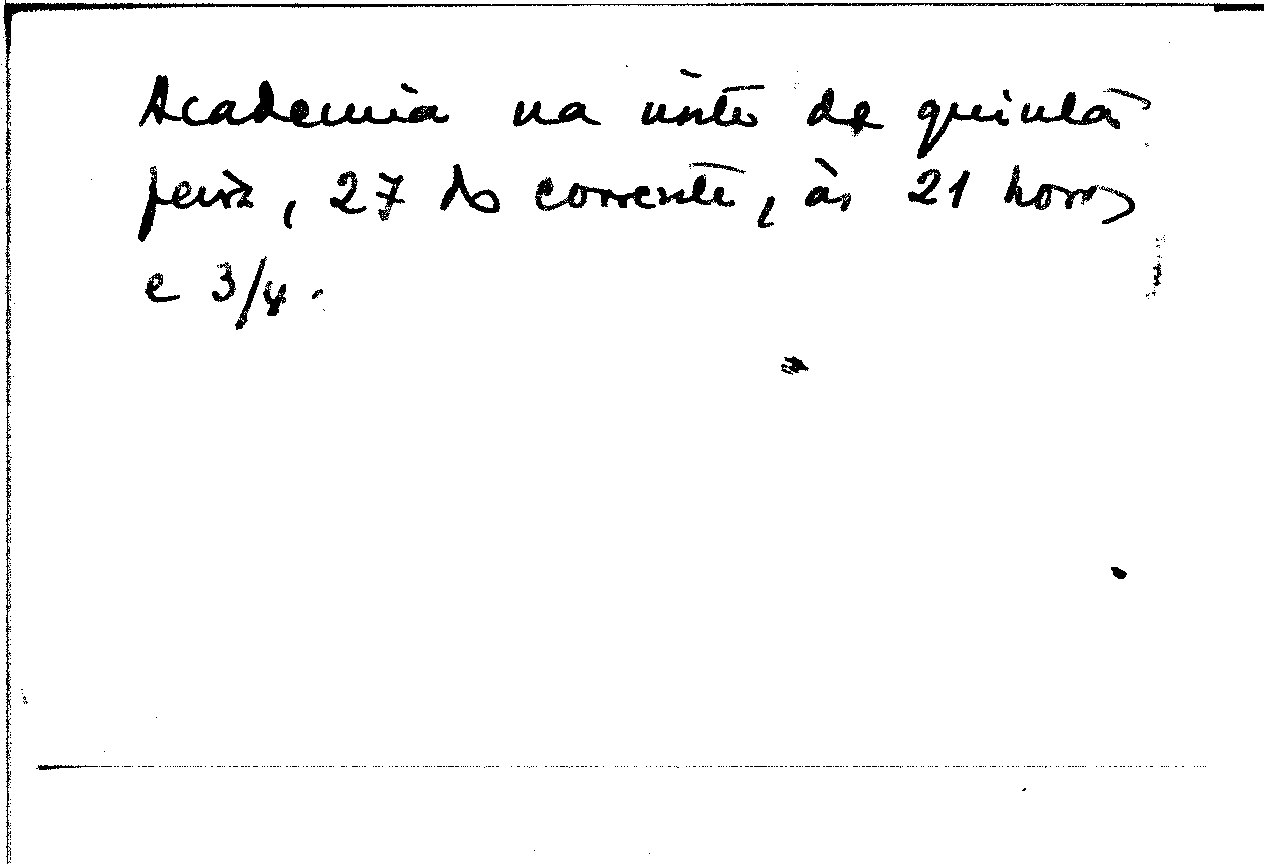 Academia na noite de quinta
feira, 27 do corrente, às 21 horas
e 3/4.